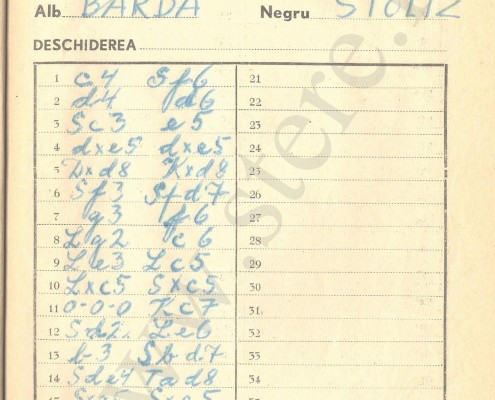 Alb BARDA Negru STOLTZ
DESCHIDEREA
1 c4 Sf6 21
2 d4 d6 22
3 Sc3 e5 23
4 dxe5 dxe5 24
5 Dxd8 Kxd8 25
6 Sf3 Sfd7 26
7 g3 f6 27
8 Lg2 c6 28
9 Le3 Lc5 29
10 Lxc5 Sxc5 30
11 0-0-0 Kc7 31
12 Sd2 Le6 32
13 b3 Sbd7 33
14 Sde4 Tad8 34
www.stere.